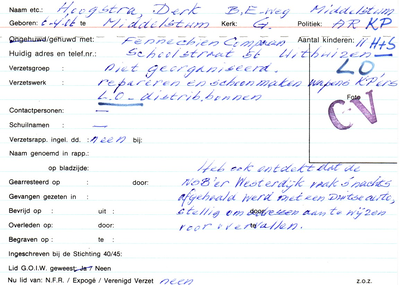 Naam etc.: Hoogstra, Derk B.E-weg Middelstum
6-4-06 te Middelstum Kerk: G. Politiek: AR KP
Ongehuwd/gehuwd met: Fennechien Cimpaan Aantal kinderen: 11 H+S
Huidig adres en telef.nr.: Schoolstraat 56 Uithuizen
Verzetsgroep : Niet georganiseerd. LO
Verzetswerk : repareren en schoonmaken wapens KP'ers
L.O. distrib. bonnen Foto
CV
Contactpersonen: —
Schuilnamen : —
Verzetsrapp. ingel. dd. : neen bij:
Naam genoemd in rapp.:
op bladzijde: Heb ook ontdekt dat de
Gearresteerd op : door: NSB'er Westerdijk vaak 's nachts
Gevangen gezeten in : afgehaald werd met een Duitse auto,
Bevrijd op : uit : door: stellig om adressen aan te wijzen
Overleden op : door: te: voor overvallen.
Begraven op : te :
Ingeschreven bij de Stichting 40/45:
Lid G.O.I.W. geweest Ja / Neen
Nu lid van: N.F.R. / Expogé / Verenigd Verzet neen z.o.z.